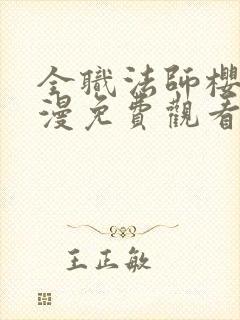 全職法師櫻
漫免費觀看
王正敏